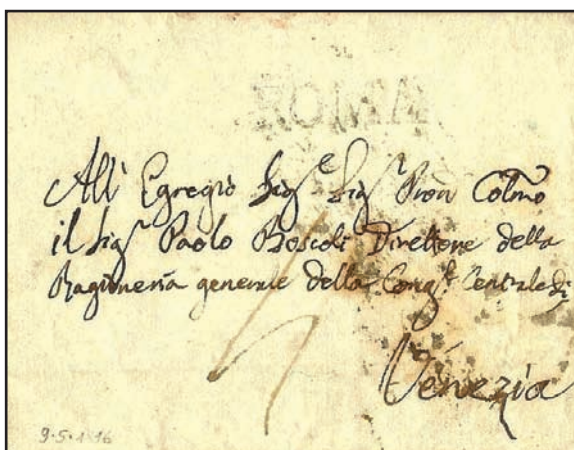 ROMA
All' Egregio Sig.e Sig.r Pròn Colmo
il Sig.r Paolo Boscoli Direttore della
Ragioneria generale della Cong.e Centrale di
Venezia
9.5.1816